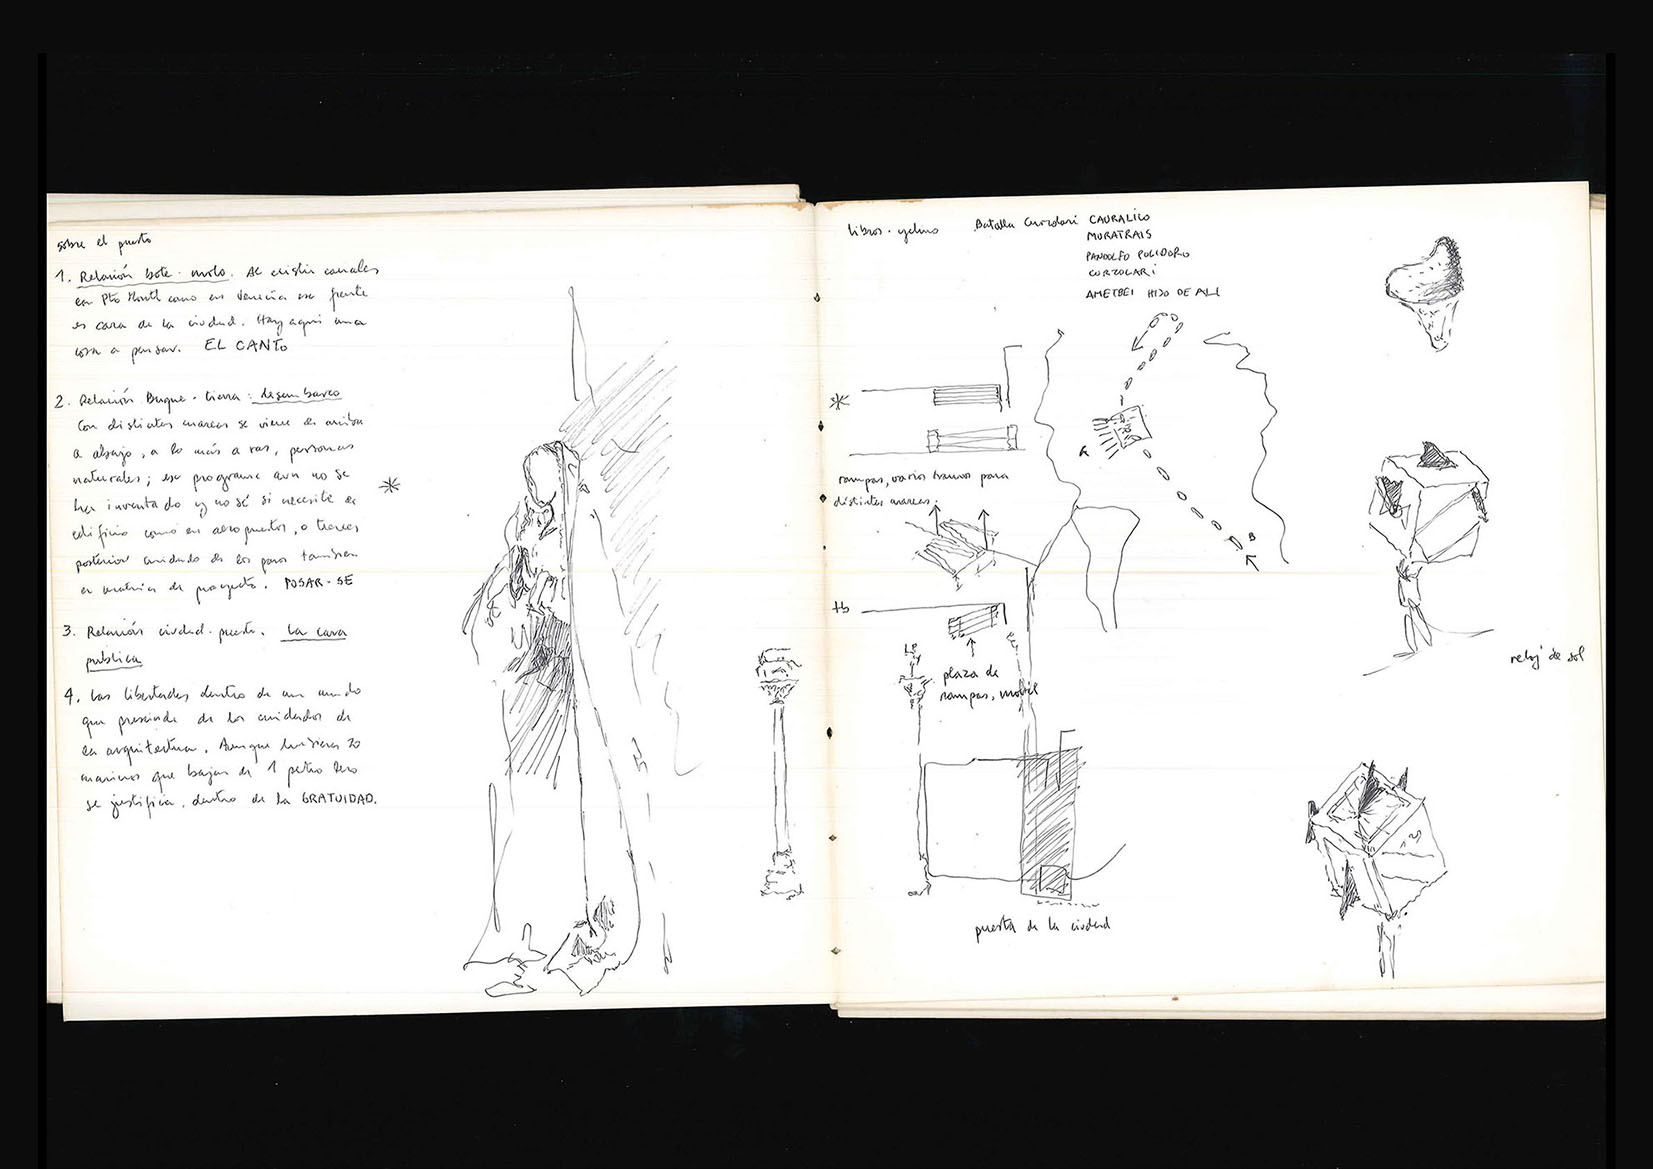 sobre el puerto
1. Relación bote - molo. Al existir canales
en Pto Montt como en Venecia ese frente
es cara de la ciudad. Hay aquí una
cosa a pensar. EL CANTO
2. Relación Buque - tierra: desembarco
Con distintas mareas se viene de arriba
a abajo, a lo más a ras, personas
naturales; ese programa aun no se
ha inventado y no sé si necesita de
edificio como en aeropuertos, o tareas
posterior cuidado de los para también
en materia de proyecto. POSAR-SE
3. Relación ciudad - puerto. La cara
pública
4. Las libertades dentro de un mundo
que prescinde de los cuidados de
la arquitectura. Aunque hubiera 20
marinos que bajan de 1 petrolero
se justifica, dentro de la GRATUIDAD.
libros - yelmo Batalla Curzolari CAURALICO
MURATRAIS
PANDOLFO POLIDORO
CURZOLARI
AMETBEI HIJO DE ALI
rampas, varios tramos para
distintas mareas.
A
B
tb
plaza de
rampas, móvil
reloj de sol
puerta de la ciudad